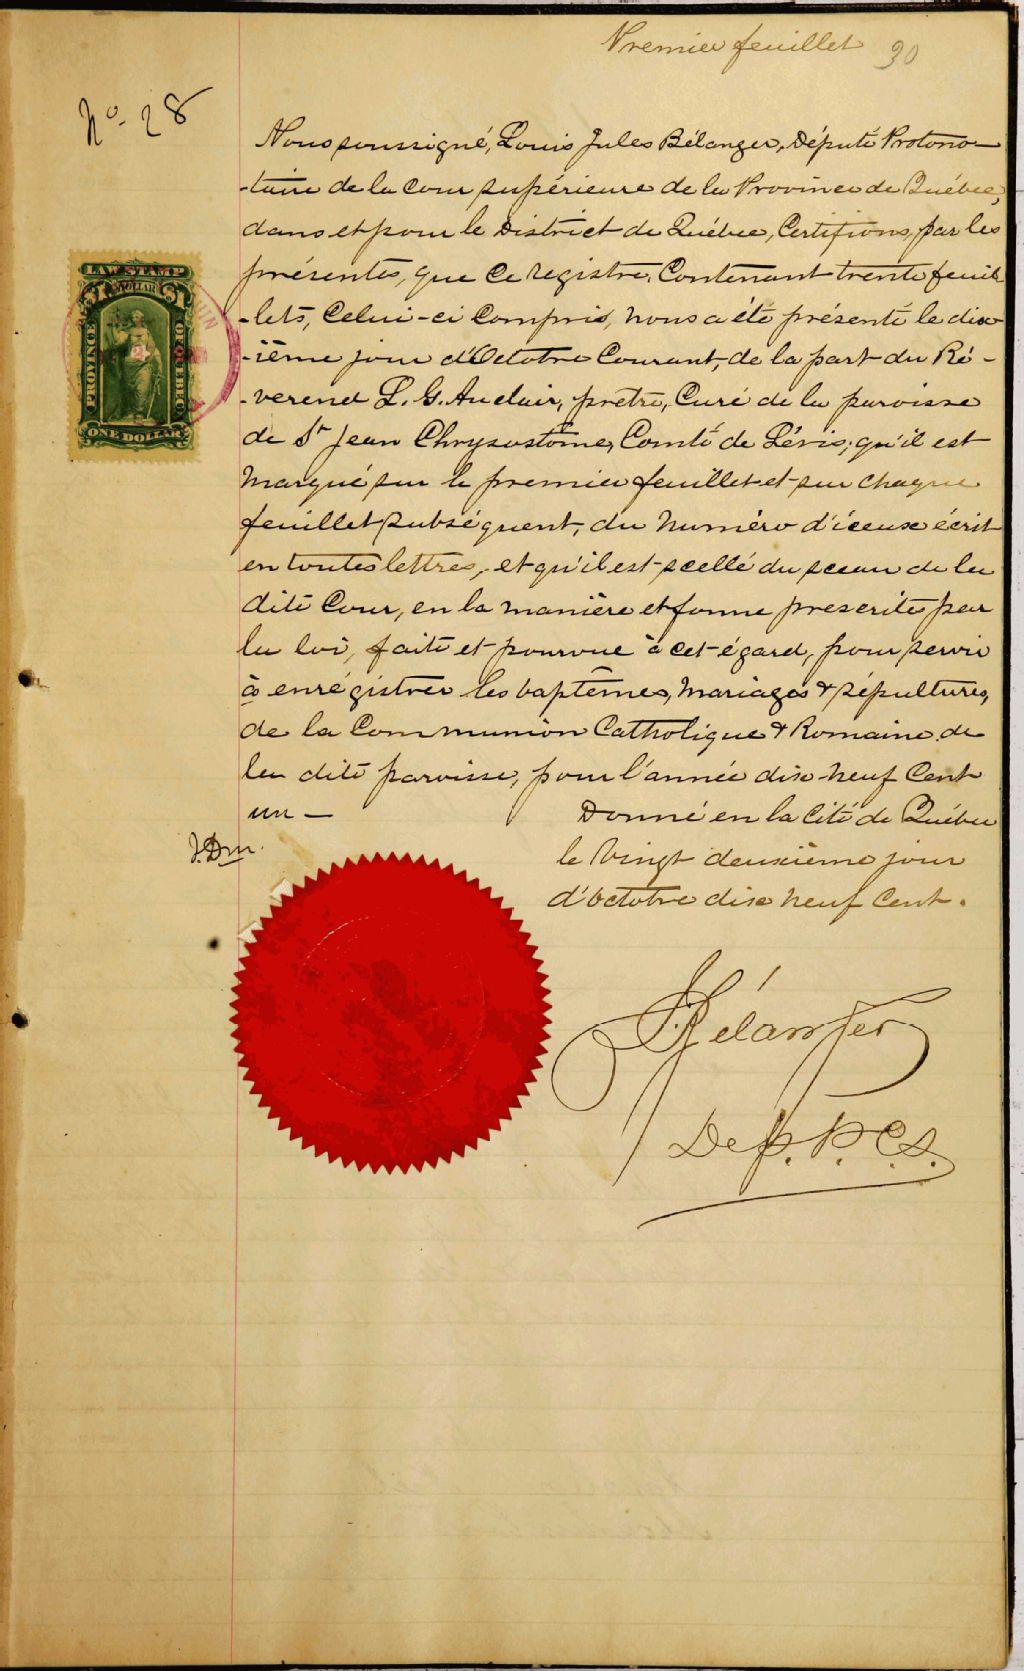 Premier feuillet 30
No. 28
Nous soussigné, Louis Jules Bélanger, Député Protono-
-taire de la Cour supérieure de la Province de Québec,
dans et pour le District de Québec, Certifions, par les
présentes, que ce registre, Contenant trente feuil-
-lets, Celui-ci Compris, nous a été présenté le dix-
-ième jour d'Octobre Courant, de la part du Ré-
-verend L. G. Auclair, prêtre, Curé de la paroisse
de St Jean Chrysostôme, Comté de Lévis; qu'il est
marqué sur le premier feuillet et sur chaque
feuillet subséquent, du numéro d'iceux écrit
en toutes lettres, et qu'il est scellé du sceau de la
dite Cour, en la manière et forme prescrites par
la loi, faite et pourvue à cet égard, pour servir
à enrégistrer les baptêmes, mariages & sépultures,
de la Communion Catholique & Romaine de
la dite paroisse, pour l'année dix-neuf Cent
un —
Donné en la Cité de Québec
le vingt deuxième jour
d'octobre dix neuf Cent.
J. Dm.
Bélanger
Dep. P. C. S.
LAW STAMP
$1 DOLLAR $1
PROVINCE
OF QUEBEC
ONE DOLLAR